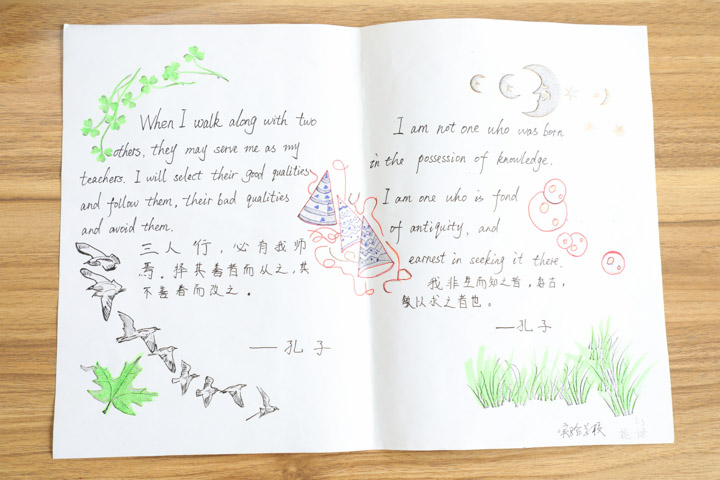 When I walk along with two
others, they may serve me as my
teachers. I will select their good qualities
and follow them, their bad qualities
and avoid them.
三人行，必有我师
焉。择其善者而从之，其
不善者而改之。
——孔子
I am not one who was born
in the possession of knowledge.
I am one who is fond
of antiquity, and
earnest in seeking it there.
我非生而知之者，好古，
敏以求之者也。
——孔子
实验学校